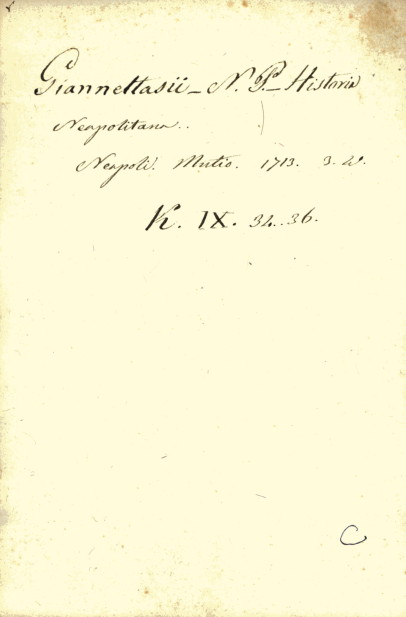 Giannettasii_ N. P._ Historia
Neapolitana..
Neapoli. Mutio. 1713. 3. v.
K. IX. 34..36.
C